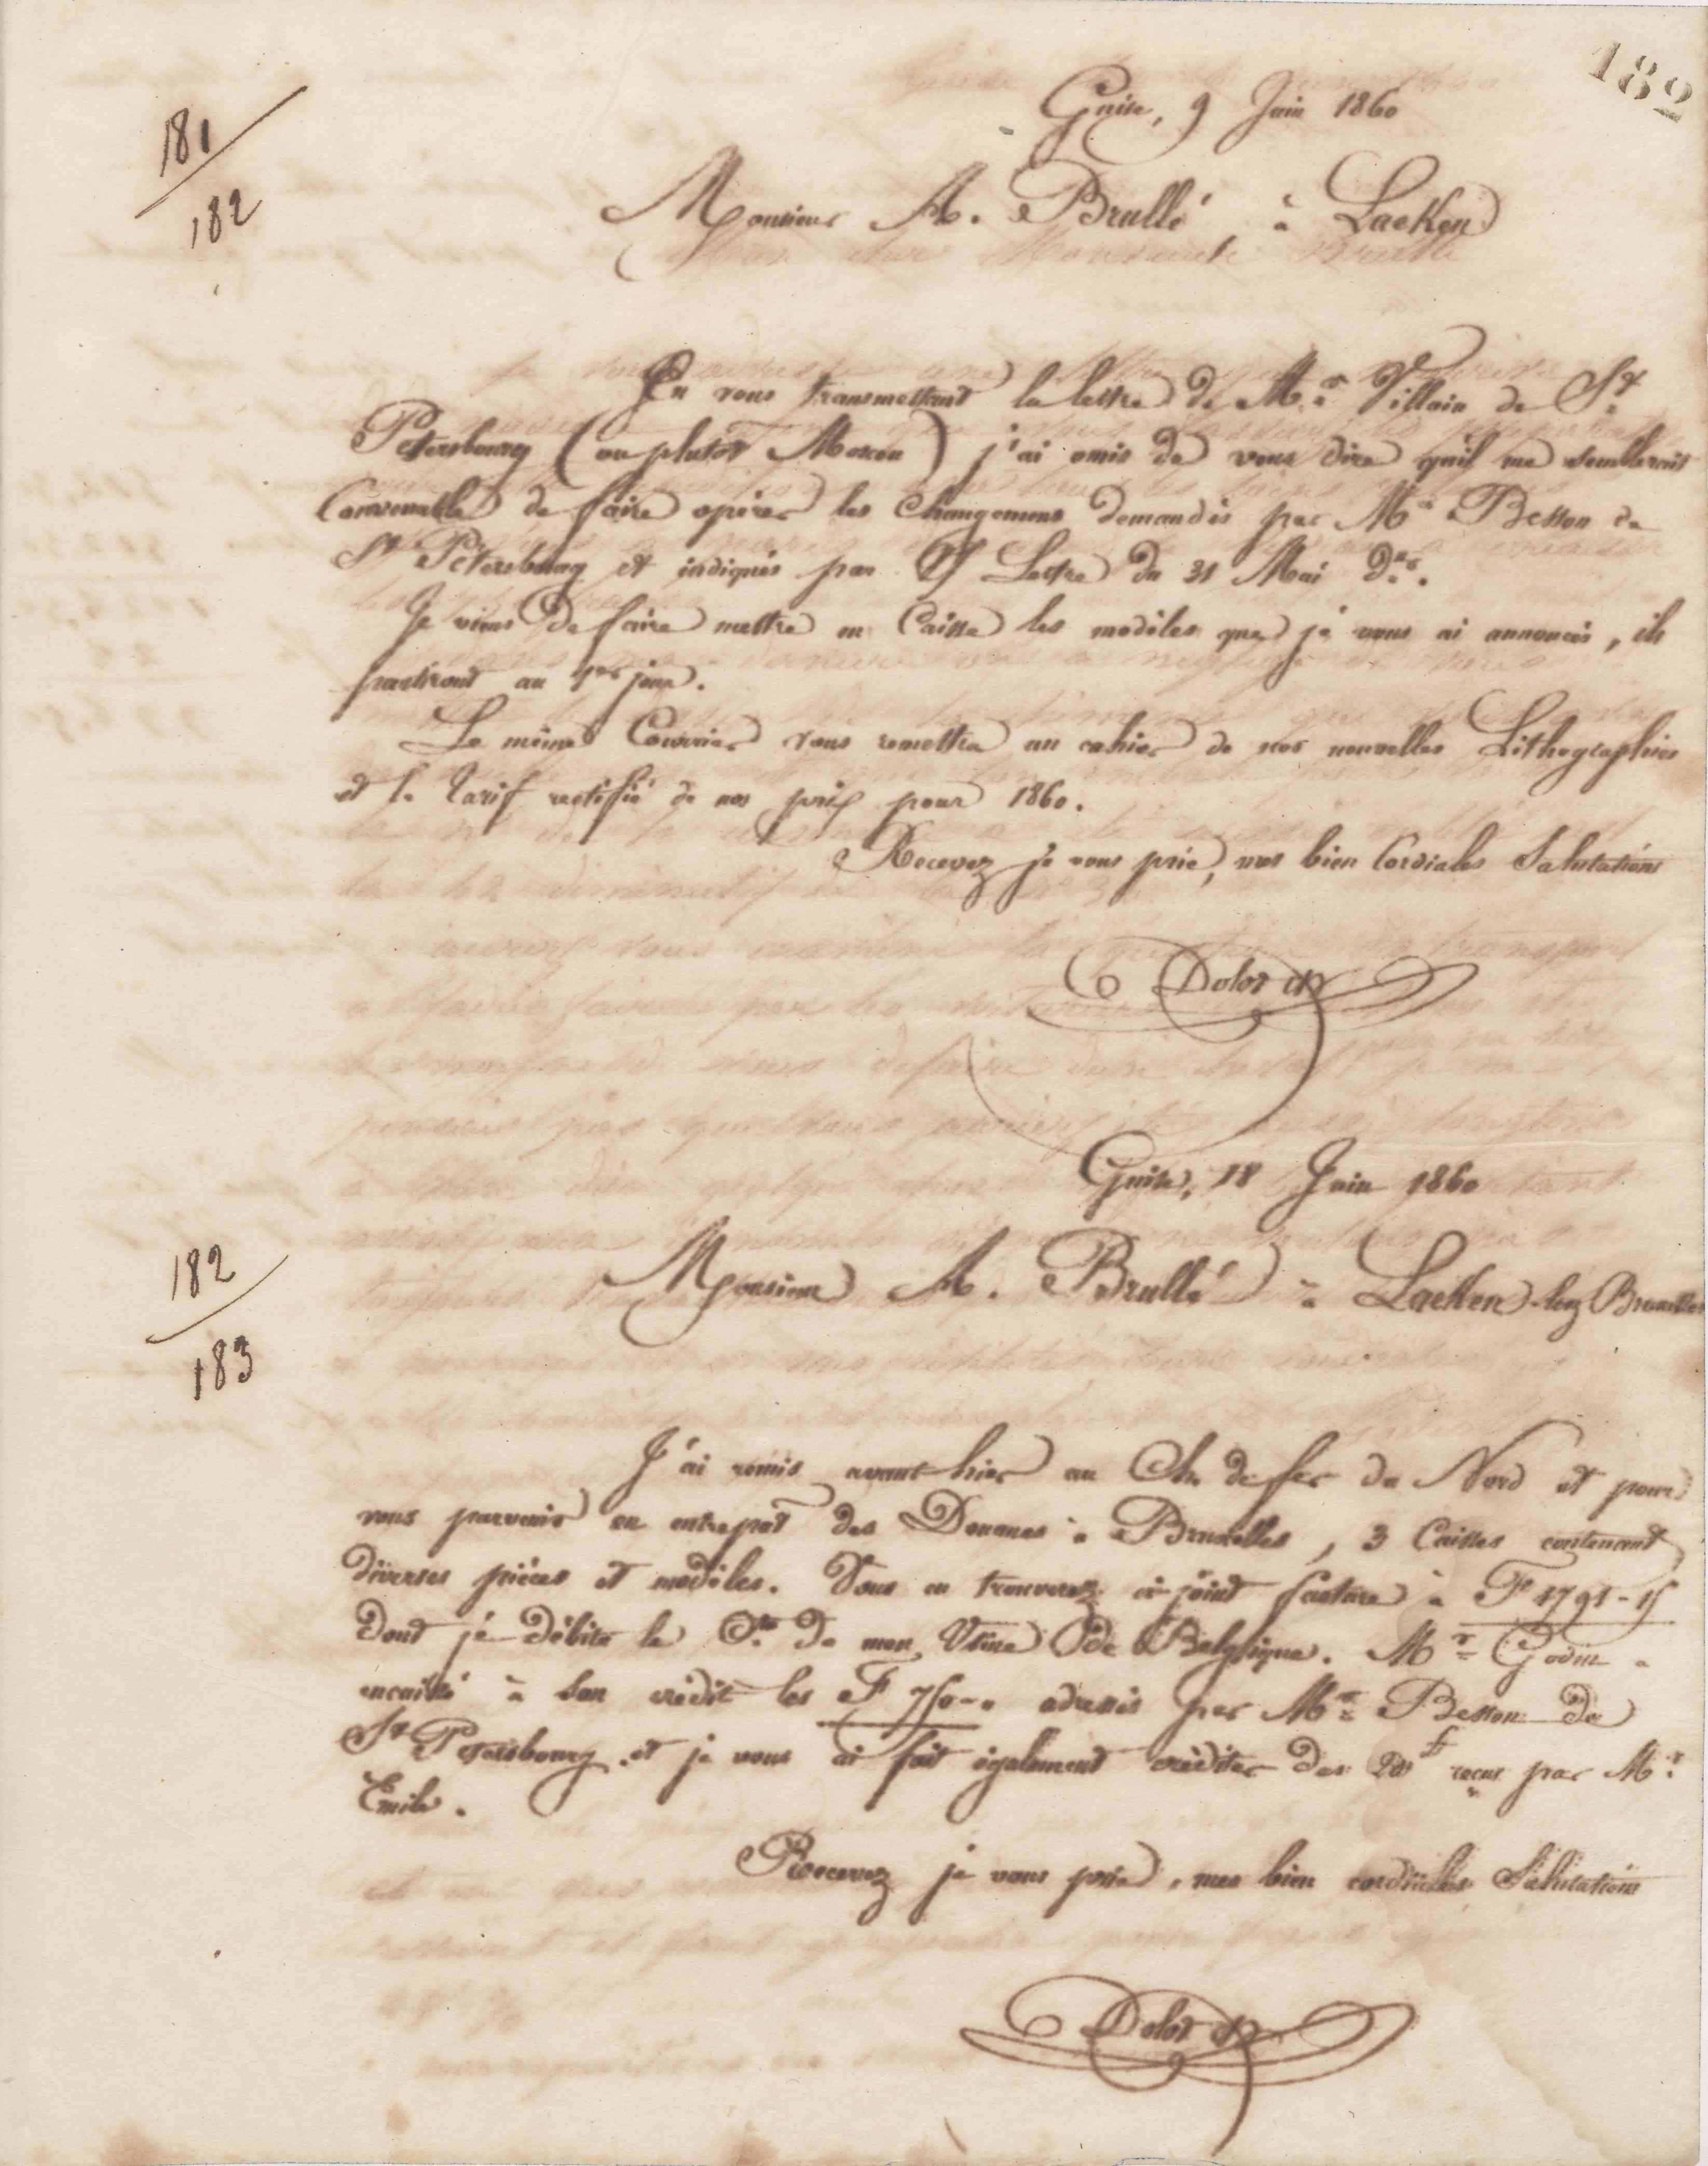 182
181
182
Guise, 9 Juin 1860
Monsieur A. Brullé, à Laeken
En vous transmettant la lettre de Mr Villain de St
Petersbourg (ou plutôt Moscou) j'ai omis de vous dire qu'il me semblerait
Convenable de faire opérer les changemens demandés par Mr Besson de
St Pétersbourg et indiqués par Lettre du 31 Mai der.
Je viens de faire mettre en Caisse les modèles que je vous ai annoncés, ils
partiront au 1er jour.
Le même Courrier vous remettra un cahier de nos nouvelles Lithographies
et le Tarif rectifié de nos prix pour 1860.
Recevez je vous prie, mes bien Cordiales Salutations
Dolot
182
183
Guise, 18 Juin 1860
Monsieur A. Brullé à Laeken-lez Bruxelles
J'ai remis avant hier au Ch. de fer du Nord et pour
vous parvenir en entrepôt des Douanes à Bruxelles, 3 Caisses contenant
diverses pièces et modèles. Vous en trouverez ci-joint facture à F 1791-15
dont je débite le Cte de mon Usine de Belgique. Mr Godin a
encaissé à son crédit les F 750-" adressés par Mr Besson de
St Petersbourg et je vous ai fait également créditer des 20f reçus par Mr
Emile.
Recevez je vous prie, mes bien cordiales Salutations
Dolot